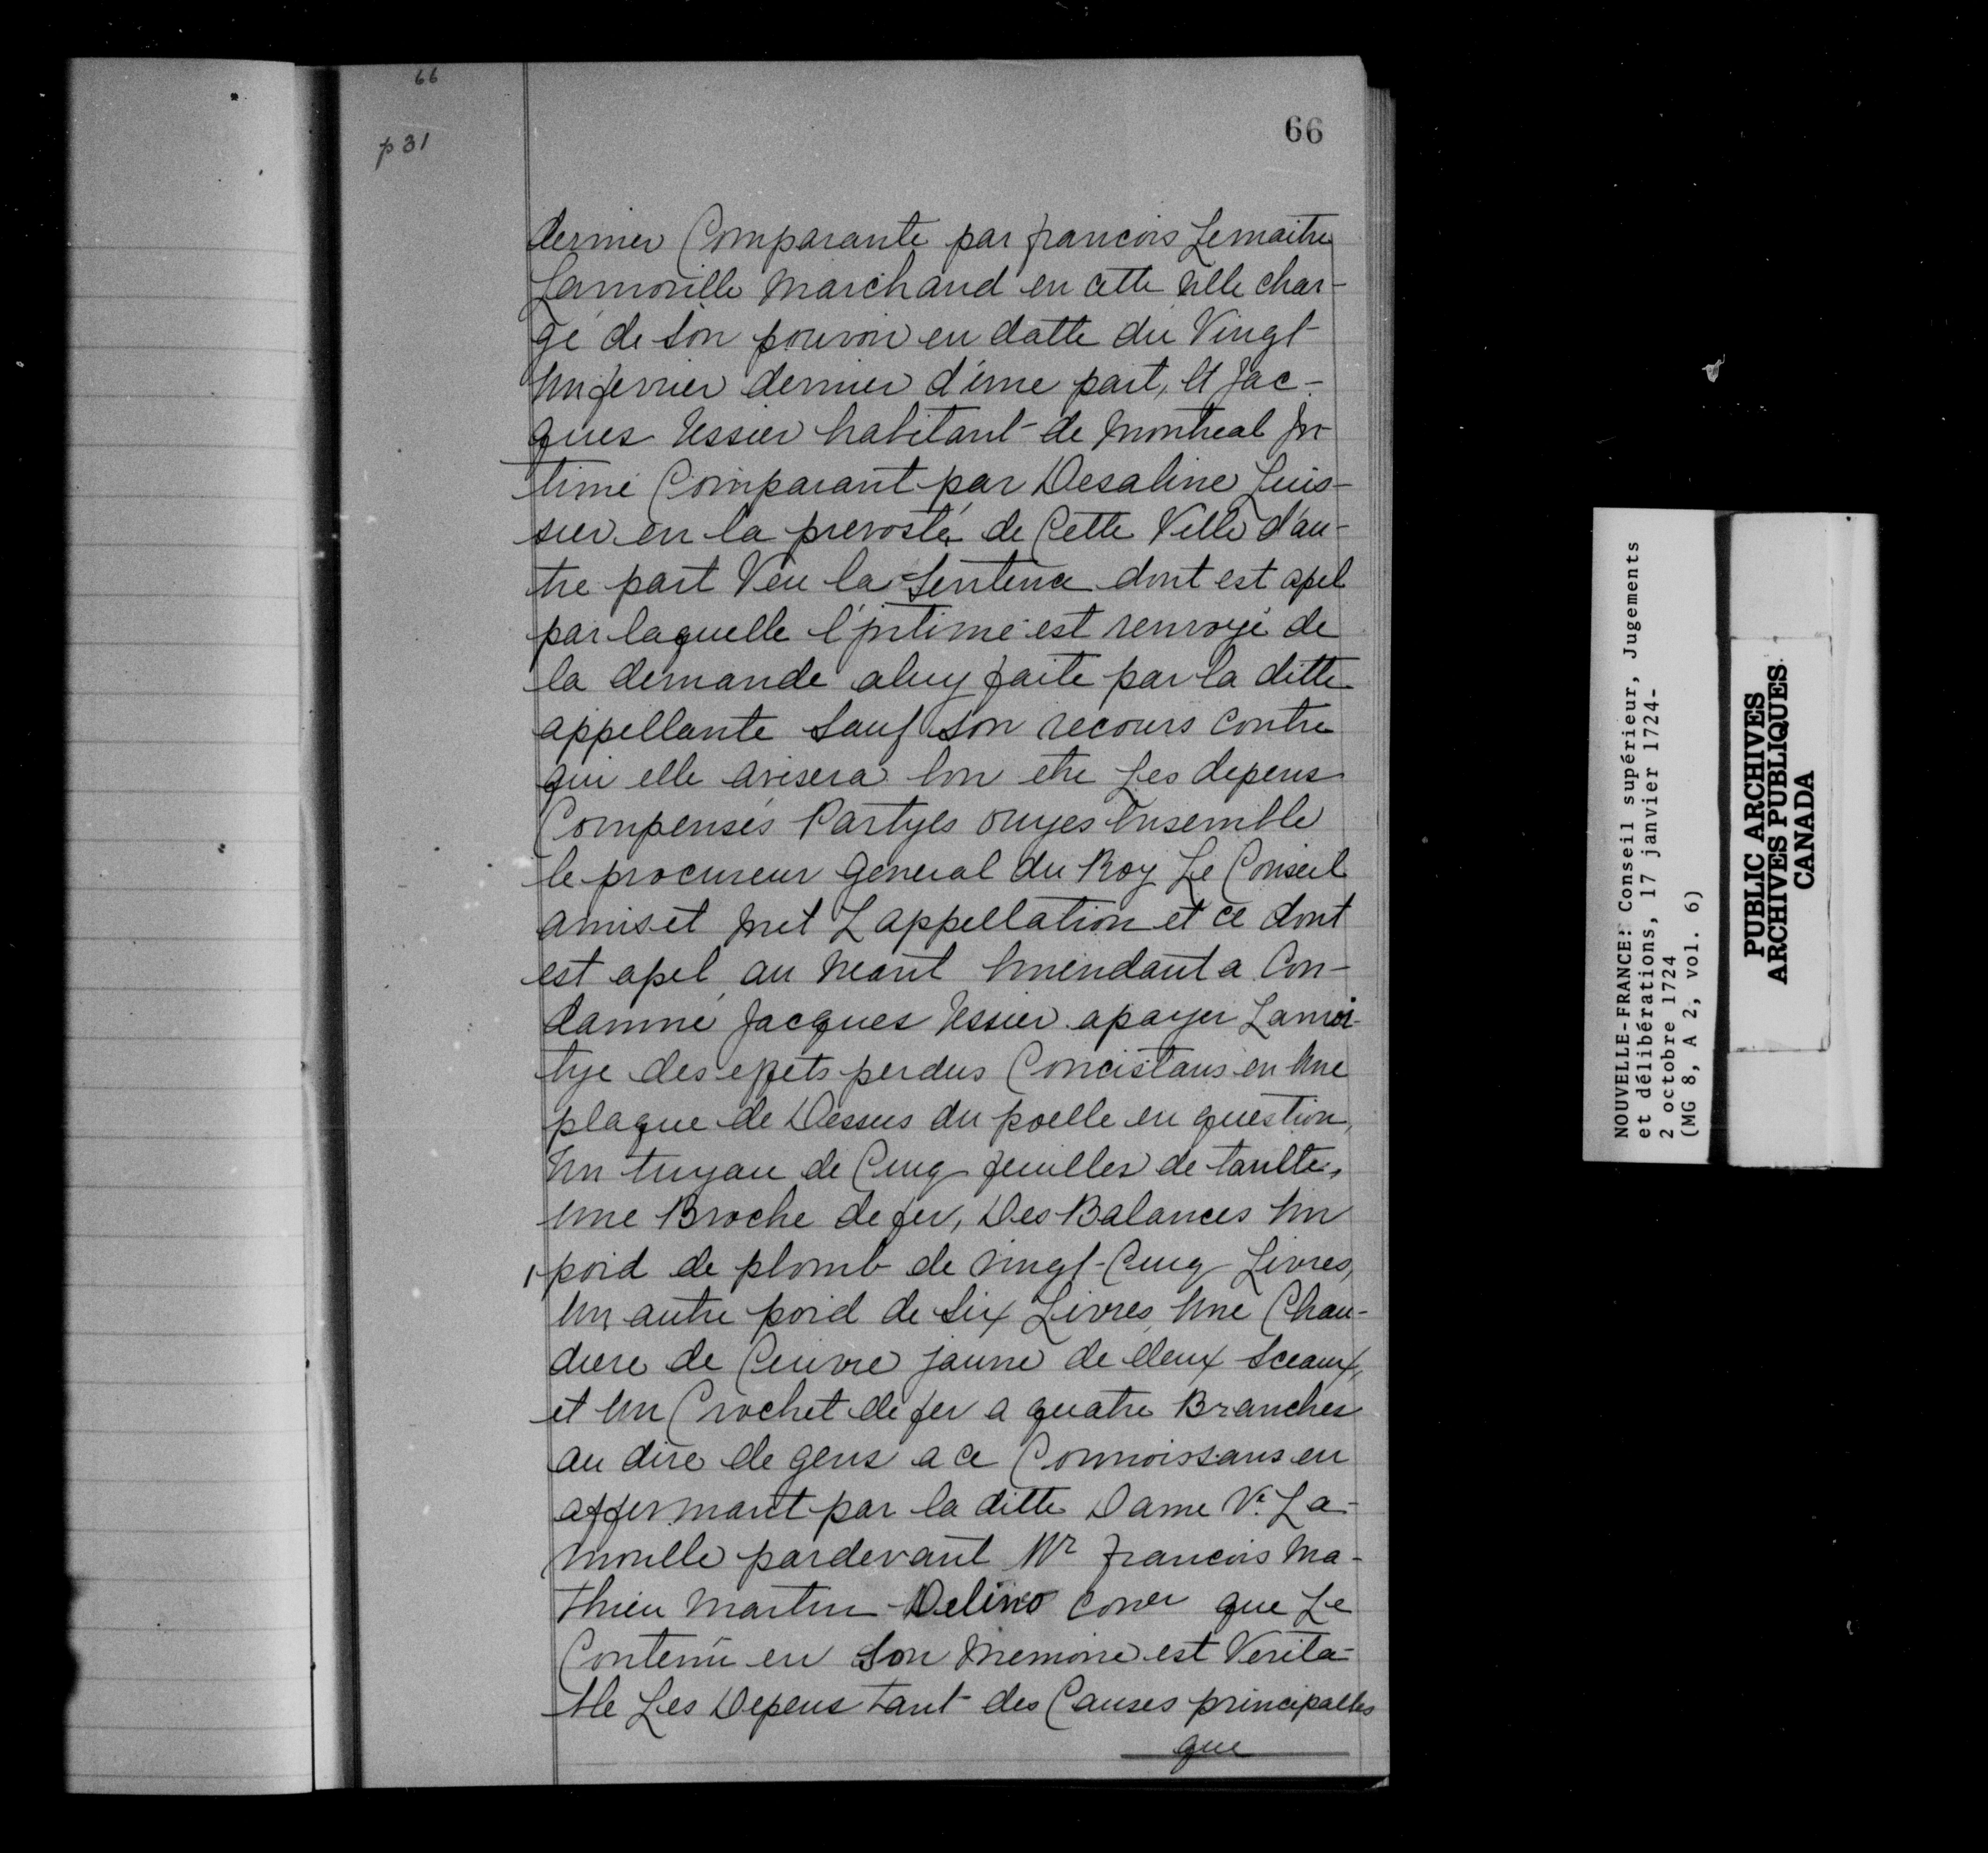 66
p 31
66
dernier Comparante par francois Lemaitre
Lamorille Marchand en cette ville char-
gé de son pouvoir en datte du Vingt
un fevrier dernier d'une part, Et Jac-
ques Tessier habitant de Montreal In-
timé Comparant par Desaline huis-
sier en la prevosté de Cette Ville d'au-
tre part Veu la Sentence dont est apel
par laquelle l'jntimé est renvoyé de
la demande aluy faite par la ditte
appellante sauf son recours contre
qui elle avisera bon etre Les depens
Compensés Partyes ouyes Ensemble
le procureur General du Roy Le Conseil
amis et met L appellation et ce dont
est apel au Neant Emendant a Con-
damné Jacques Tessier apayer Lamoi-
tye des effets perdus Concistans en Une
plaque de Dessus du poelle en question,
Un tuyau de Cinq feuilles de taulle,
Une Broche de fer, Des Balances Un
poid de plomb de vingt-Cinq Livres,
Un autre poid de Six Livres, Une Chau-
diere de Cuivre jaune de deux Sceaux,
et Un Crochet de fer a quatre Branches
au dire de gens a ce Connoissans en
affermant par la ditte Dame Ve. La-
morille pardevant Mr francois Ma-
thieu Martin Delino Coner que Le
Contenu en Son Memoire est Verita-
ble Les Depens tant des Causes principalles
que
NOUVELLE-FRANCE: Conseil supérieur, Jugements
et délibérations, 17 janvier 1724-
2 octobre 1724
(MG 8, A 2, vol. 6)
PUBLIC ARCHIVES
ARCHIVES PUBLIQUES
CANADA